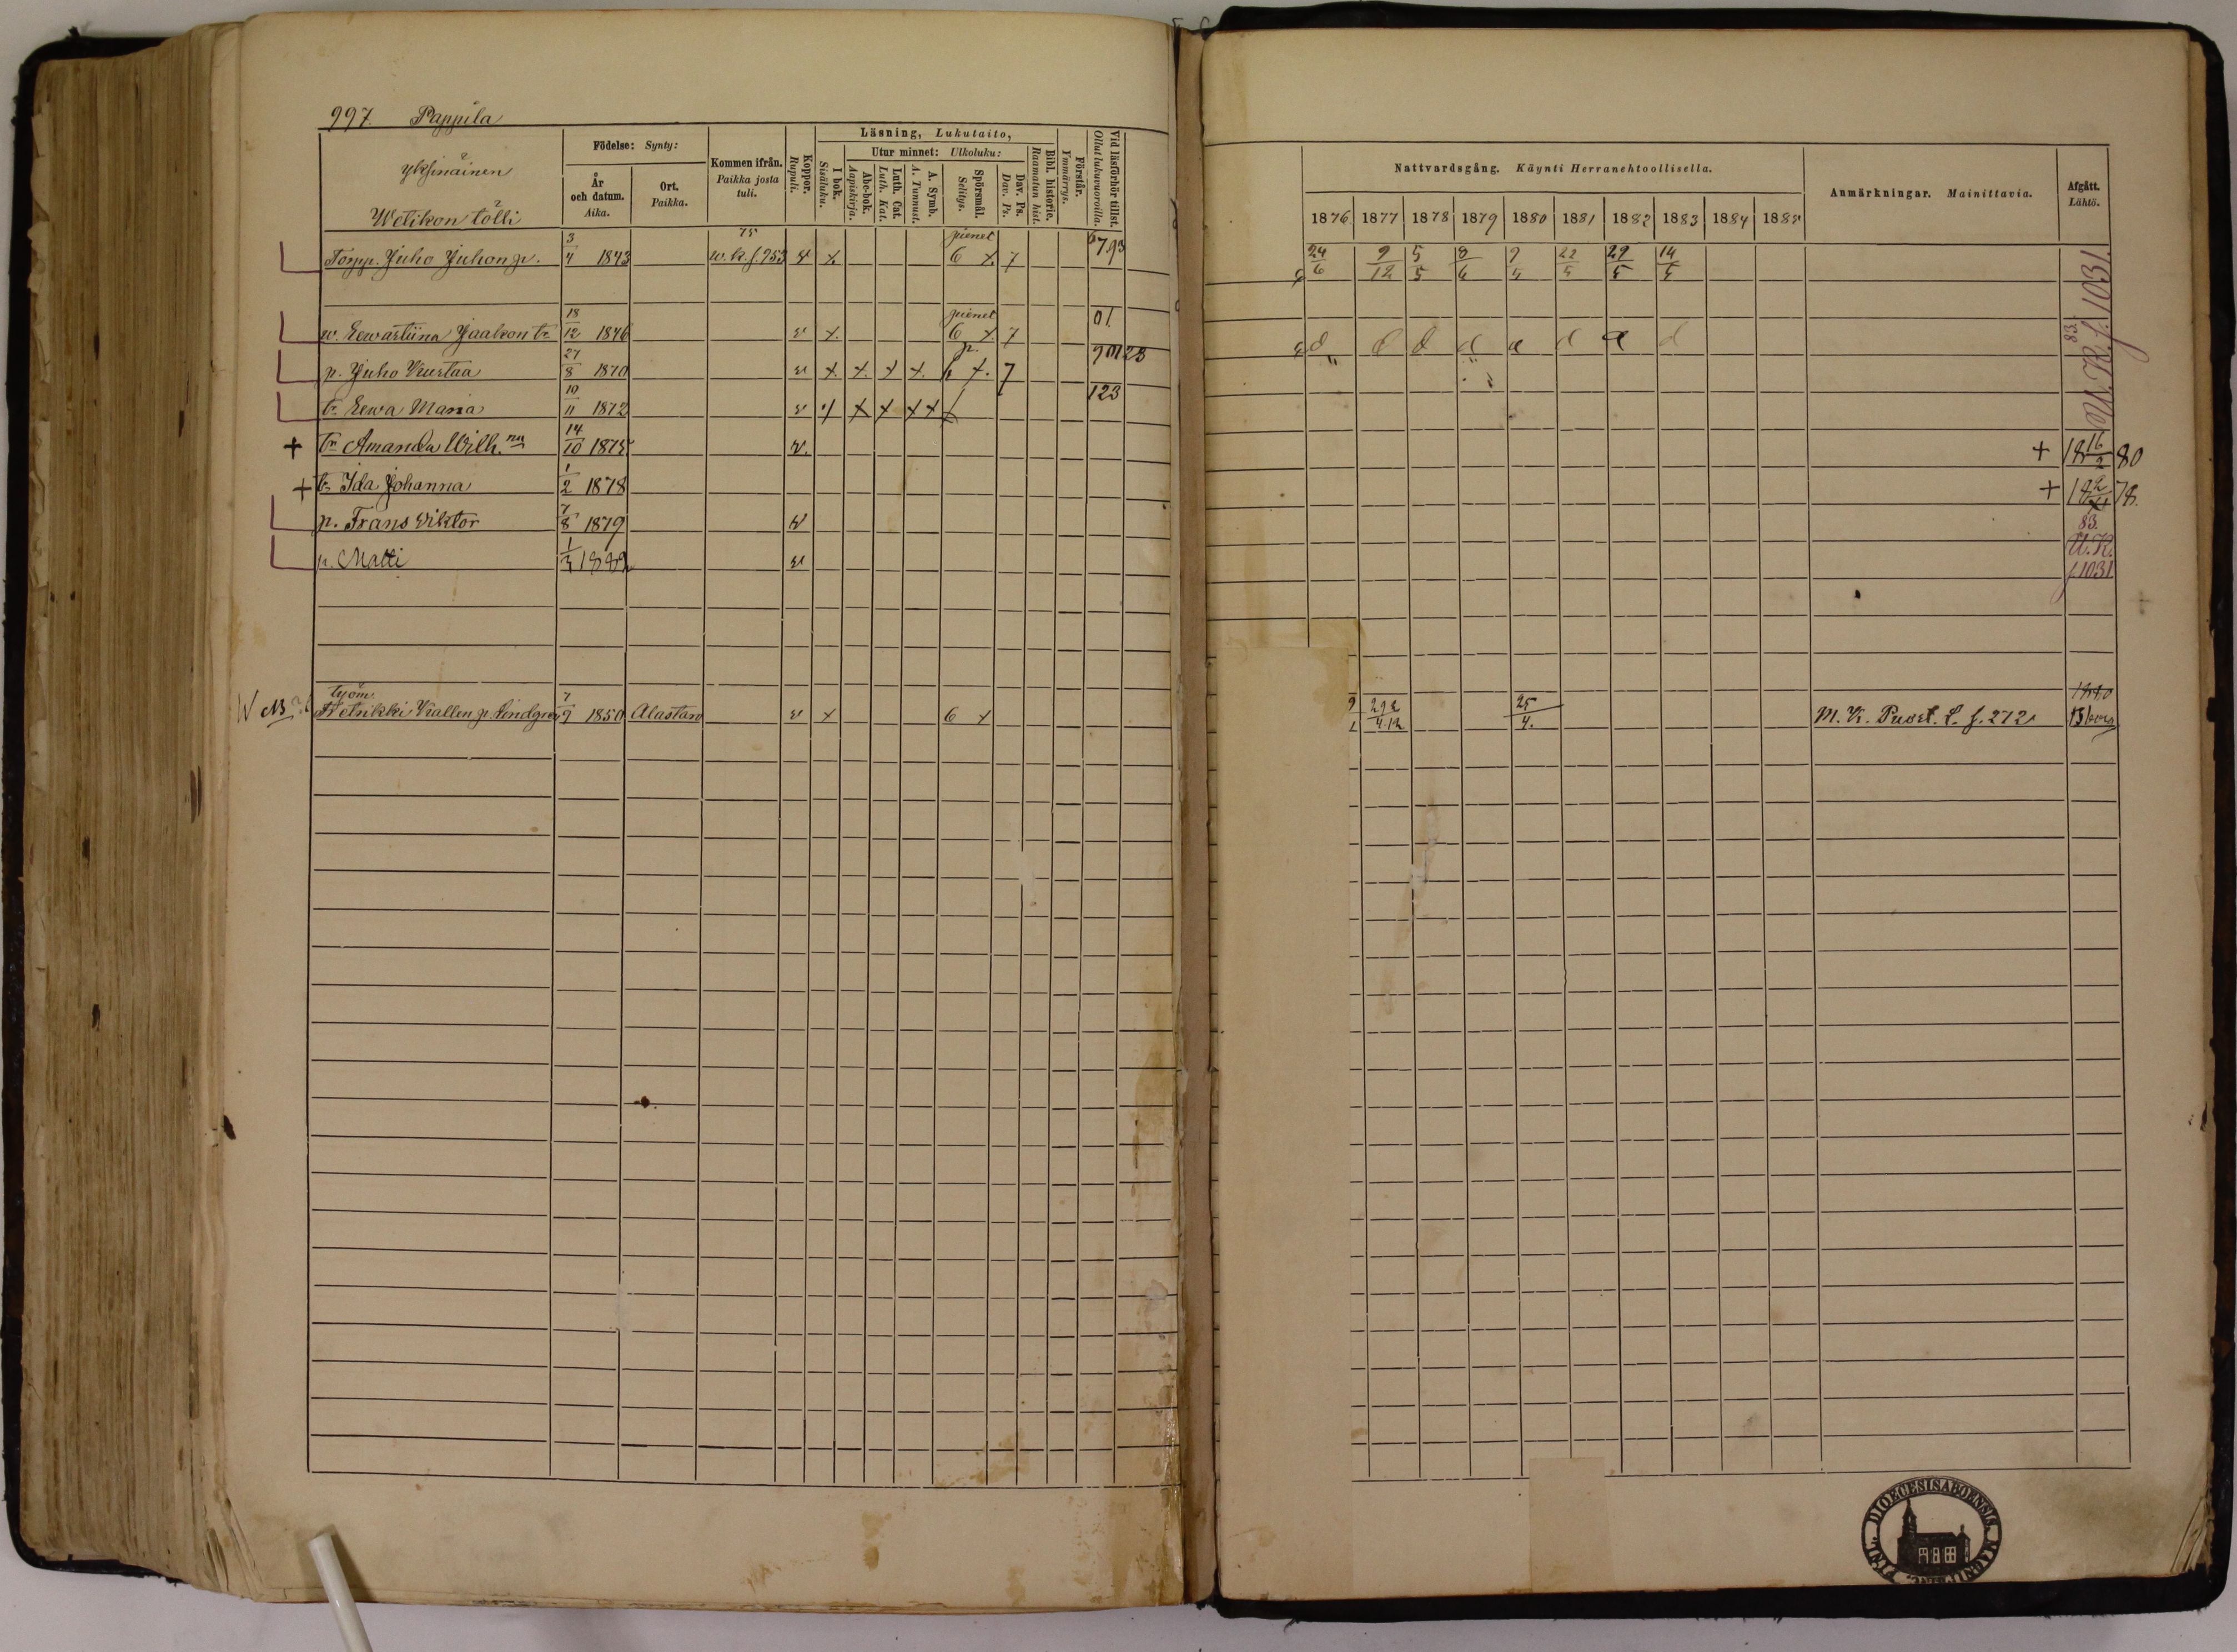 997. Pappila
yksinäinen
Wetikon tölli
Födelse: Synty:
År och datum. Aika.
Ort. Paikka.
Kommen ifrån. Paikka josta tuli.
Koppor. Rupuli.
Läsning, Lukutaito,
I bok. Sisäluku.
Utur minnet: Ulkoluku:
Abc-bok. Aapiskirja.
Luth. Cat. Luth. Kat.
A. Symb. A. Tunnust.
Spörsmål. Selitys.
Dav. Ps. Dav. Ps.
Bibl. historie. Raamatun hist.
Förstår. Ymmärrys.
Vid läsförhör tillst. Ollut lukuvuoroilla.
Nattvardsgång. Käynti Herranehtoollisella.
1876 1877 1878 1879 1880 1881 1882 1883 1884 1885
Anmärkningar. Mainittavia.
Afgått. Lähtö.
Torpp. Juho Juhon p. 3/4 1843 75 w.k.f. 953 x pienet 6 x 7 793
24/6 9/12 5/5 8/6 9/5 22/5 29/5 14/5
w. Eewastiina Jaakon tr. 18/12 1846 x pienet 6 x 7 01
p. Juho Kustaa 27/8 1870 x x x x p. 6 x. 7 90123
tr. Eewa Maria 19/11 1872 x x x x 123
83. f. 1031
+ tr. Amanda Wilh.na 14/10 1875 + 18 16/2 80
+ tr. Ida Johanna 1/2 1878 + 78.
p. Frans Wiktor 7/8 1879
p. Matti 1/3 1882
83.
U.K.
f. 1031
työm.
Wetrikki Kallen p. Lindgren 7/9 1850 Alastaro x 6 x
29 2/4.12 25/4. M. K. Puust. L. f. 272
DIOECESIS ABOENSIS